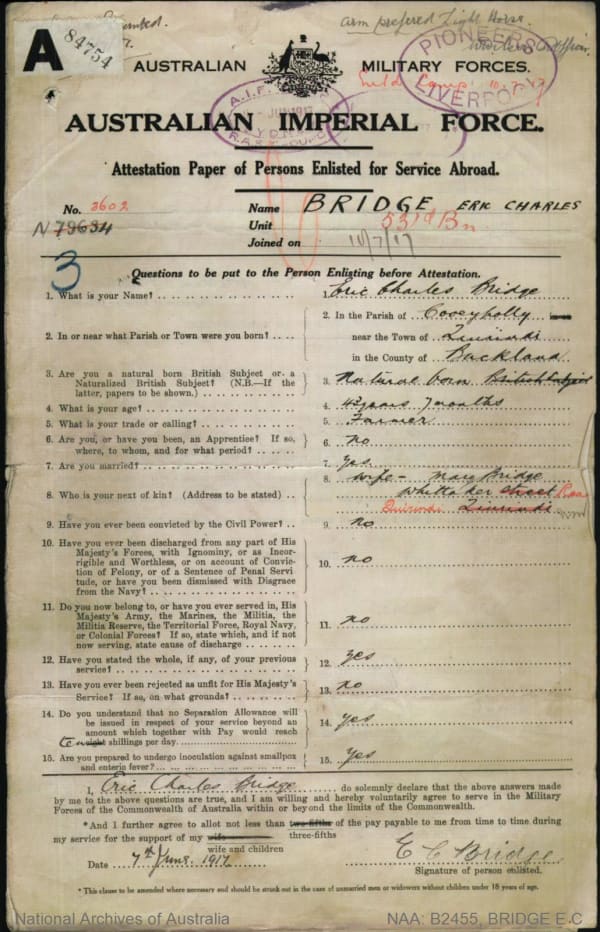 A 84754
arm prefered Light Horse.
PIONEERS
LIVERPOOL
AUSTRALIAN MILITARY FORCES.
A.I.F.
JUN 1917
AUSTRALIAN IMPERIAL FORCE.
Attestation Paper of Persons Enlisted for Service Abroad.
No. 3602 Name BRIDGE ERIC CHARLES
N 79634 Unit 53rd Bn.
Joined on 10/7/17
3
Questions to be put to the Person Enlisting before Attestation.
1. What is your Name? Eric Charles Bridge
2. In or near what Parish or Town were you born? 2. In the Parish of
near the Town of
in the County of Buckland
3. Are you a natural born British Subject or a
Naturalized British Subject? (N.B.—If the
latter, papers to be shown.) 3. Natural born British Subject
4. What is your age? 4. 42 years 7 months
5. What is your trade or calling? 5. Farmer
6. Are you, or have you been, an Apprentice? If so,
where, to whom, and for what period? 6. no
7. Are you married? 7. Yes
8. Who is your next of kin? (Address to be stated) 8. wife - Mary Bridge
Whittaker Street
Quirindi
9. Have you ever been convicted by the Civil Power? 9. no
10. Have you ever been discharged from any part of His
Majesty's Forces, with Ignominy, or as Incor-
rigible and Worthless, or on account of Convic-
tion of Felony, or of a Sentence of Penal Servi
tude, or have you been dismissed with Disgrace
from the Navy? 10. no
11. Do you now belong to, or have you ever served in, His
Majesty's Army, the Marines, the Militia, the
Militia Reserve, the Territorial Force, Royal Navy,
or Colonial Forces? If so, state which, and if not
now serving, state cause of discharge 11. no
12. Have you stated the whole, if any, of your previous
service? 12. yes
13. Have you ever been rejected as unfit for His Majesty's
Service? If so, on what grounds? 13. no
14. Do you understand that no Separation Allowance will
be issued in respect of your service beyond an
amount which together with Pay would reach
ten eight shillings per day 14. yes
15. Are you prepared to undergo inoculation against smallpox
and enteric fever? 15. Yes
I, Eric Charles Bridge do solemnly declare that the above answers made
by me to the above questions are true, and I am willing and hereby voluntarily agree to serve in the Military
Forces of the Commonwealth of Australia within or beyond the limits of the Commonwealth.
*And I further agree to allot not less than two-fifths of the pay payable to me from time to time during
three-fifths
my service for the support of my wife
wife and children
Date 7th June 1917 E C Bridge
Signature of person enlisted.
* This clause to be amended where necessary and should be struck out in the case of unmarried men or widowers without children under 18 years of age.
National Archives of Australia NAA: B2455, BRIDGE E C